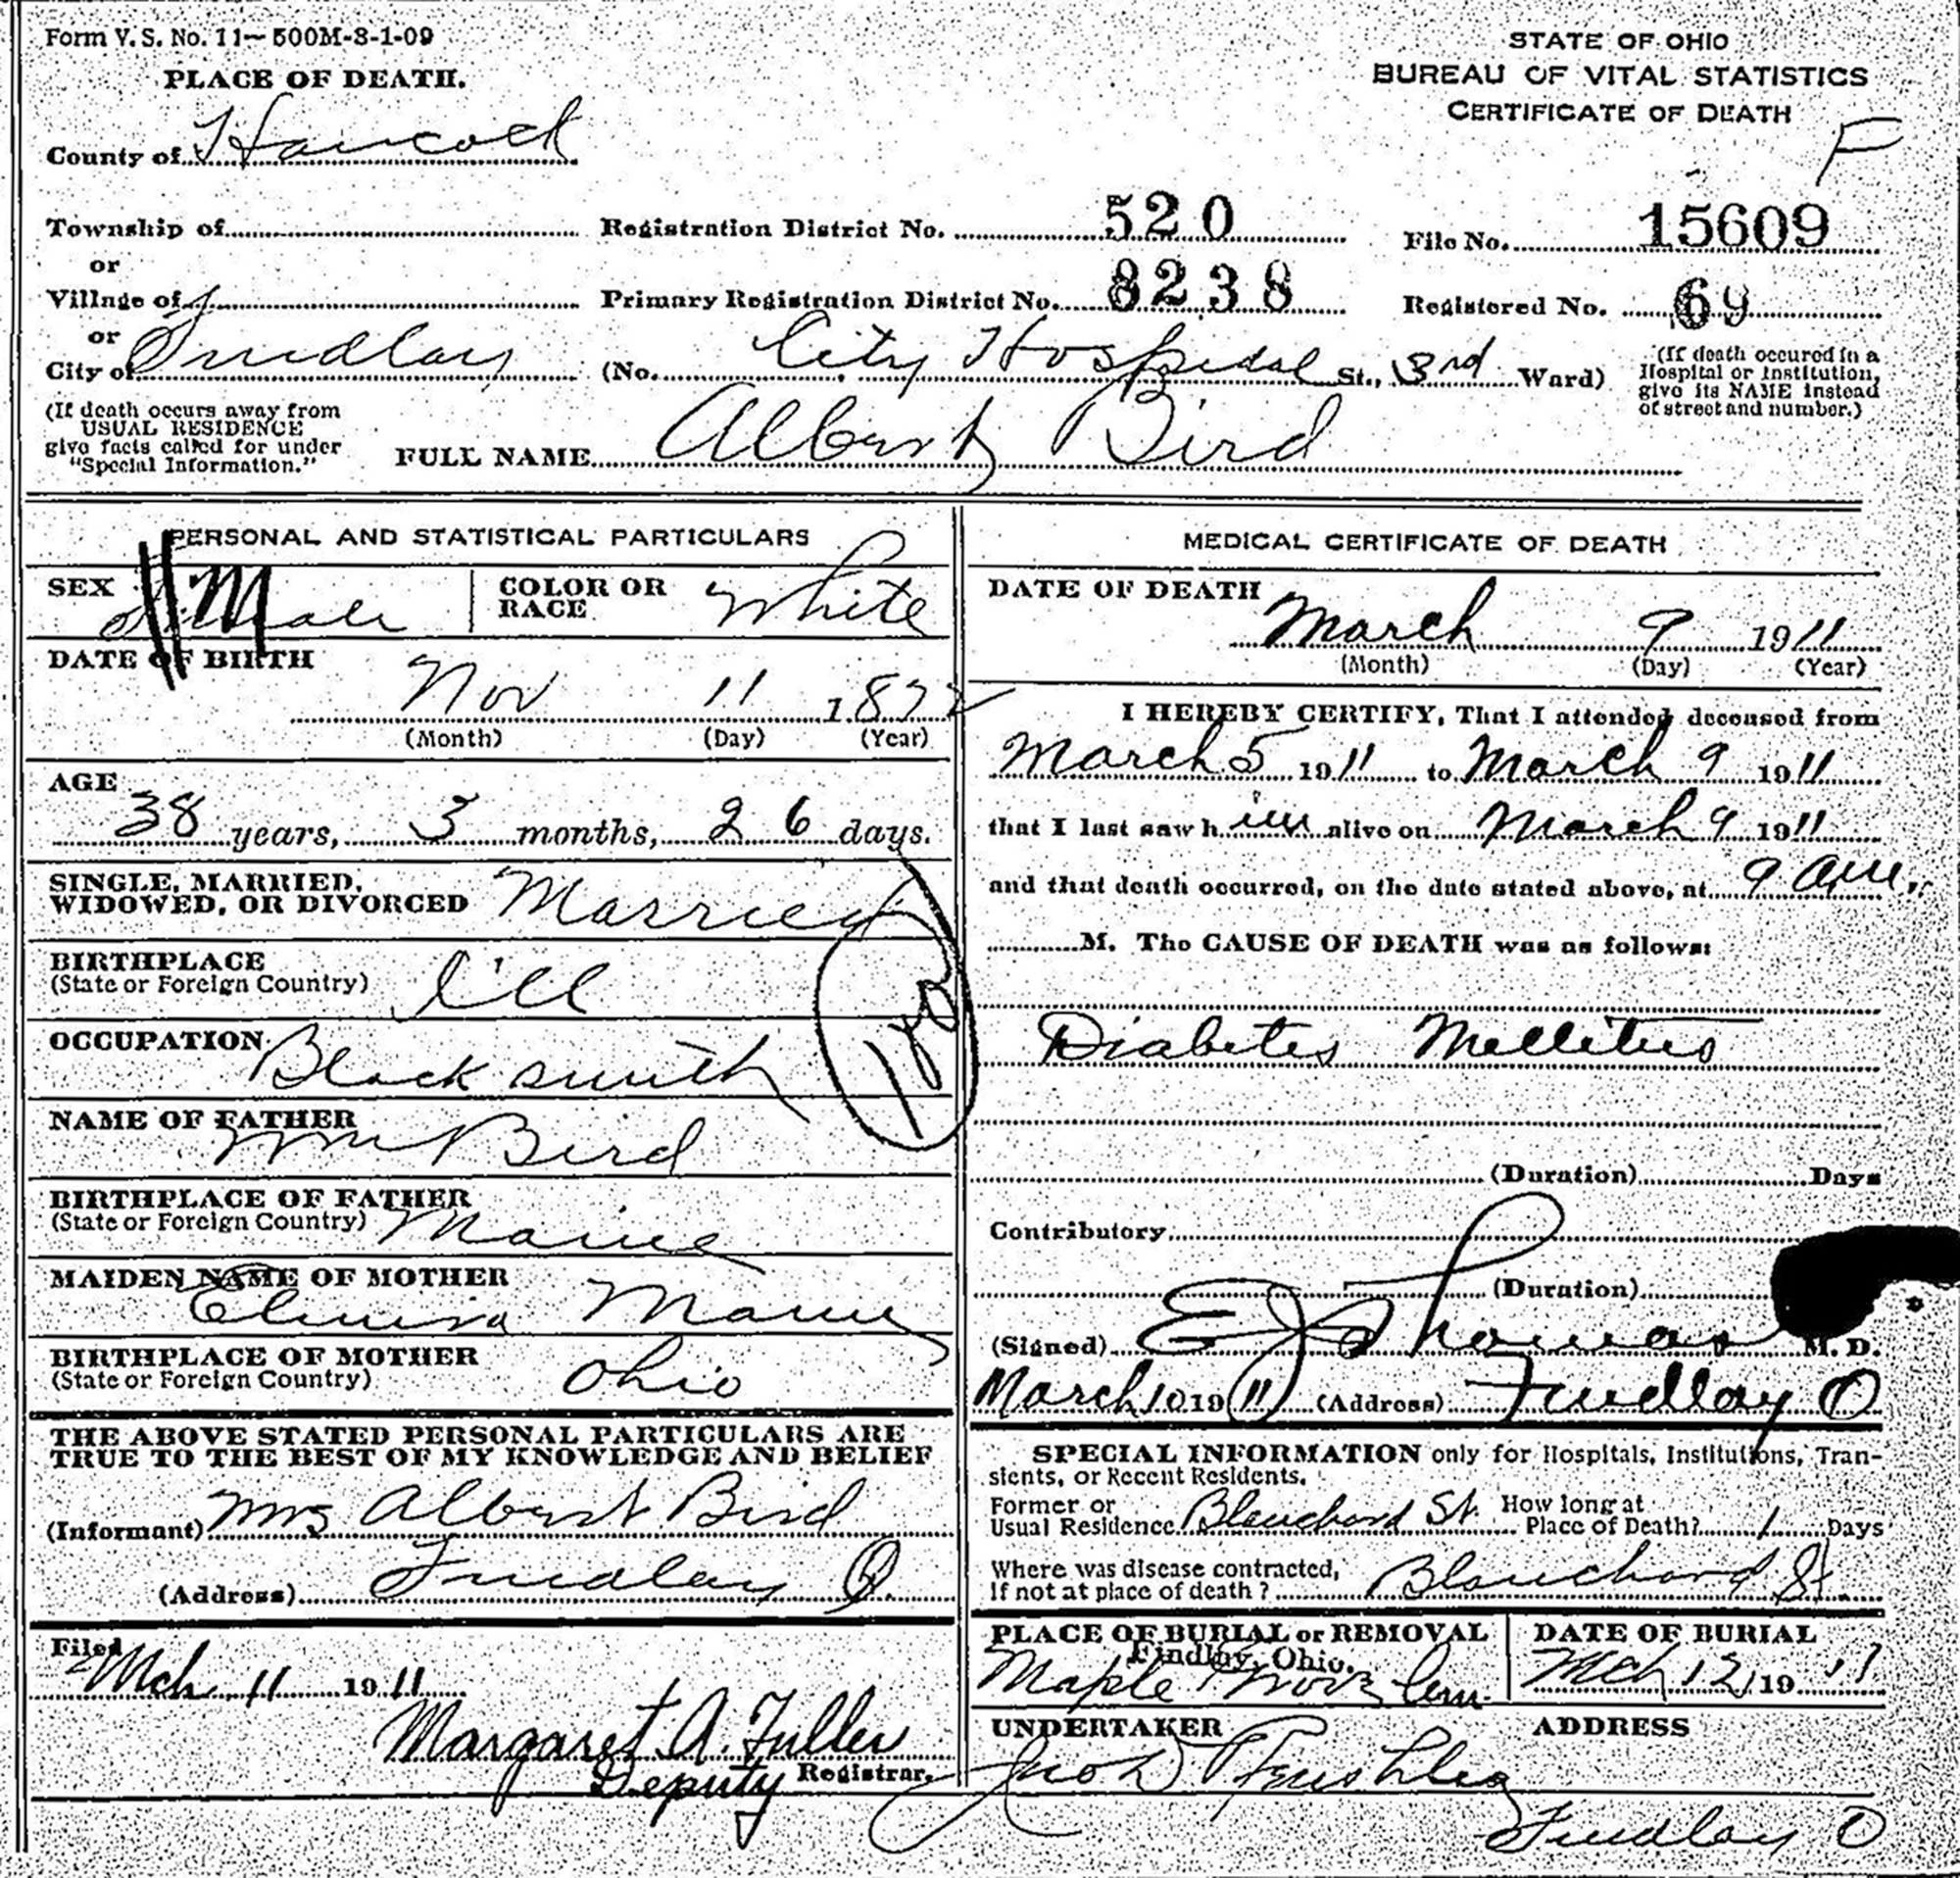 Form V. S. No. 11—500M-8-1-09
PLACE OF DEATH.
STATE OF OHIO
BUREAU OF VITAL STATISTICS
CERTIFICATE OF DEATH
F
County of Hancock
Township of
or
Village of
or
City of Findlay
Registration District No. 520
File No. 15609
Primary Registration District No. 8238
Registered No. 69
(No. City Hospital St., 3rd Ward)
(If death occured in a
Hospital or Institution,
give its NAME instead
of street and number.)
(If death occurs away from
USUAL RESIDENCE
give facts called for under
"Special Information."
FULL NAME Albert Bird
PERSONAL AND STATISTICAL PARTICULARS
SEX Male
COLOR OR
RACE White
DATE OF BIRTH
Nov 11 1872
(Month) (Day) (Year)
AGE
38 years, 3 months, 26 days.
SINGLE, MARRIED,
WIDOWED, OR DIVORCED Married
BIRTHPLACE
(State or Foreign Country) Ill
OCCUPATION Blacksmith
NAME OF FATHER
Wm Bird
BIRTHPLACE OF FATHER
(State or Foreign Country) Maine
MAIDEN NAME OF MOTHER
BIRTHPLACE OF MOTHER
(State or Foreign Country) Ohio
THE ABOVE STATED PERSONAL PARTICULARS ARE
TRUE TO THE BEST OF MY KNOWLEDGE AND BELIEF
(Informant) Mrs Albert Bird
(Address) Findlay O.
Filed
Mch 11 1911
Margaret A. Fuller
Deputy Registrar.
MEDICAL CERTIFICATE OF DEATH
DATE OF DEATH
March 9 1911
(Month) (Day) (Year)
I HEREBY CERTIFY, That I attended deceased from
March 5 1911 to March 9 1911
that I last saw him alive on March 9 1911
and that death occurred, on the date stated above, at 9 am.
M. The CAUSE OF DEATH was as follows:
Diabetes Mellitus
(Duration) Days
Contributory
(Duration)
(Signed) E J Thomas M. D.
March 10 1911 (Address) Findlay O
SPECIAL INFORMATION only for Hospitals, Institutions, Tran-
sients, or Recent Residents.
Former or
Usual Residence Blanchard St. How long at
Place of Death? 1 Days
Where was disease contracted,
If not at place of death? Blanchard St
PLACE OF BURIAL or REMOVAL
Findlay, Ohio.
Maple Grove Cem.
DATE OF BURIAL
Mch 12 1911
UNDERTAKER
ADDRESS
Findlay O